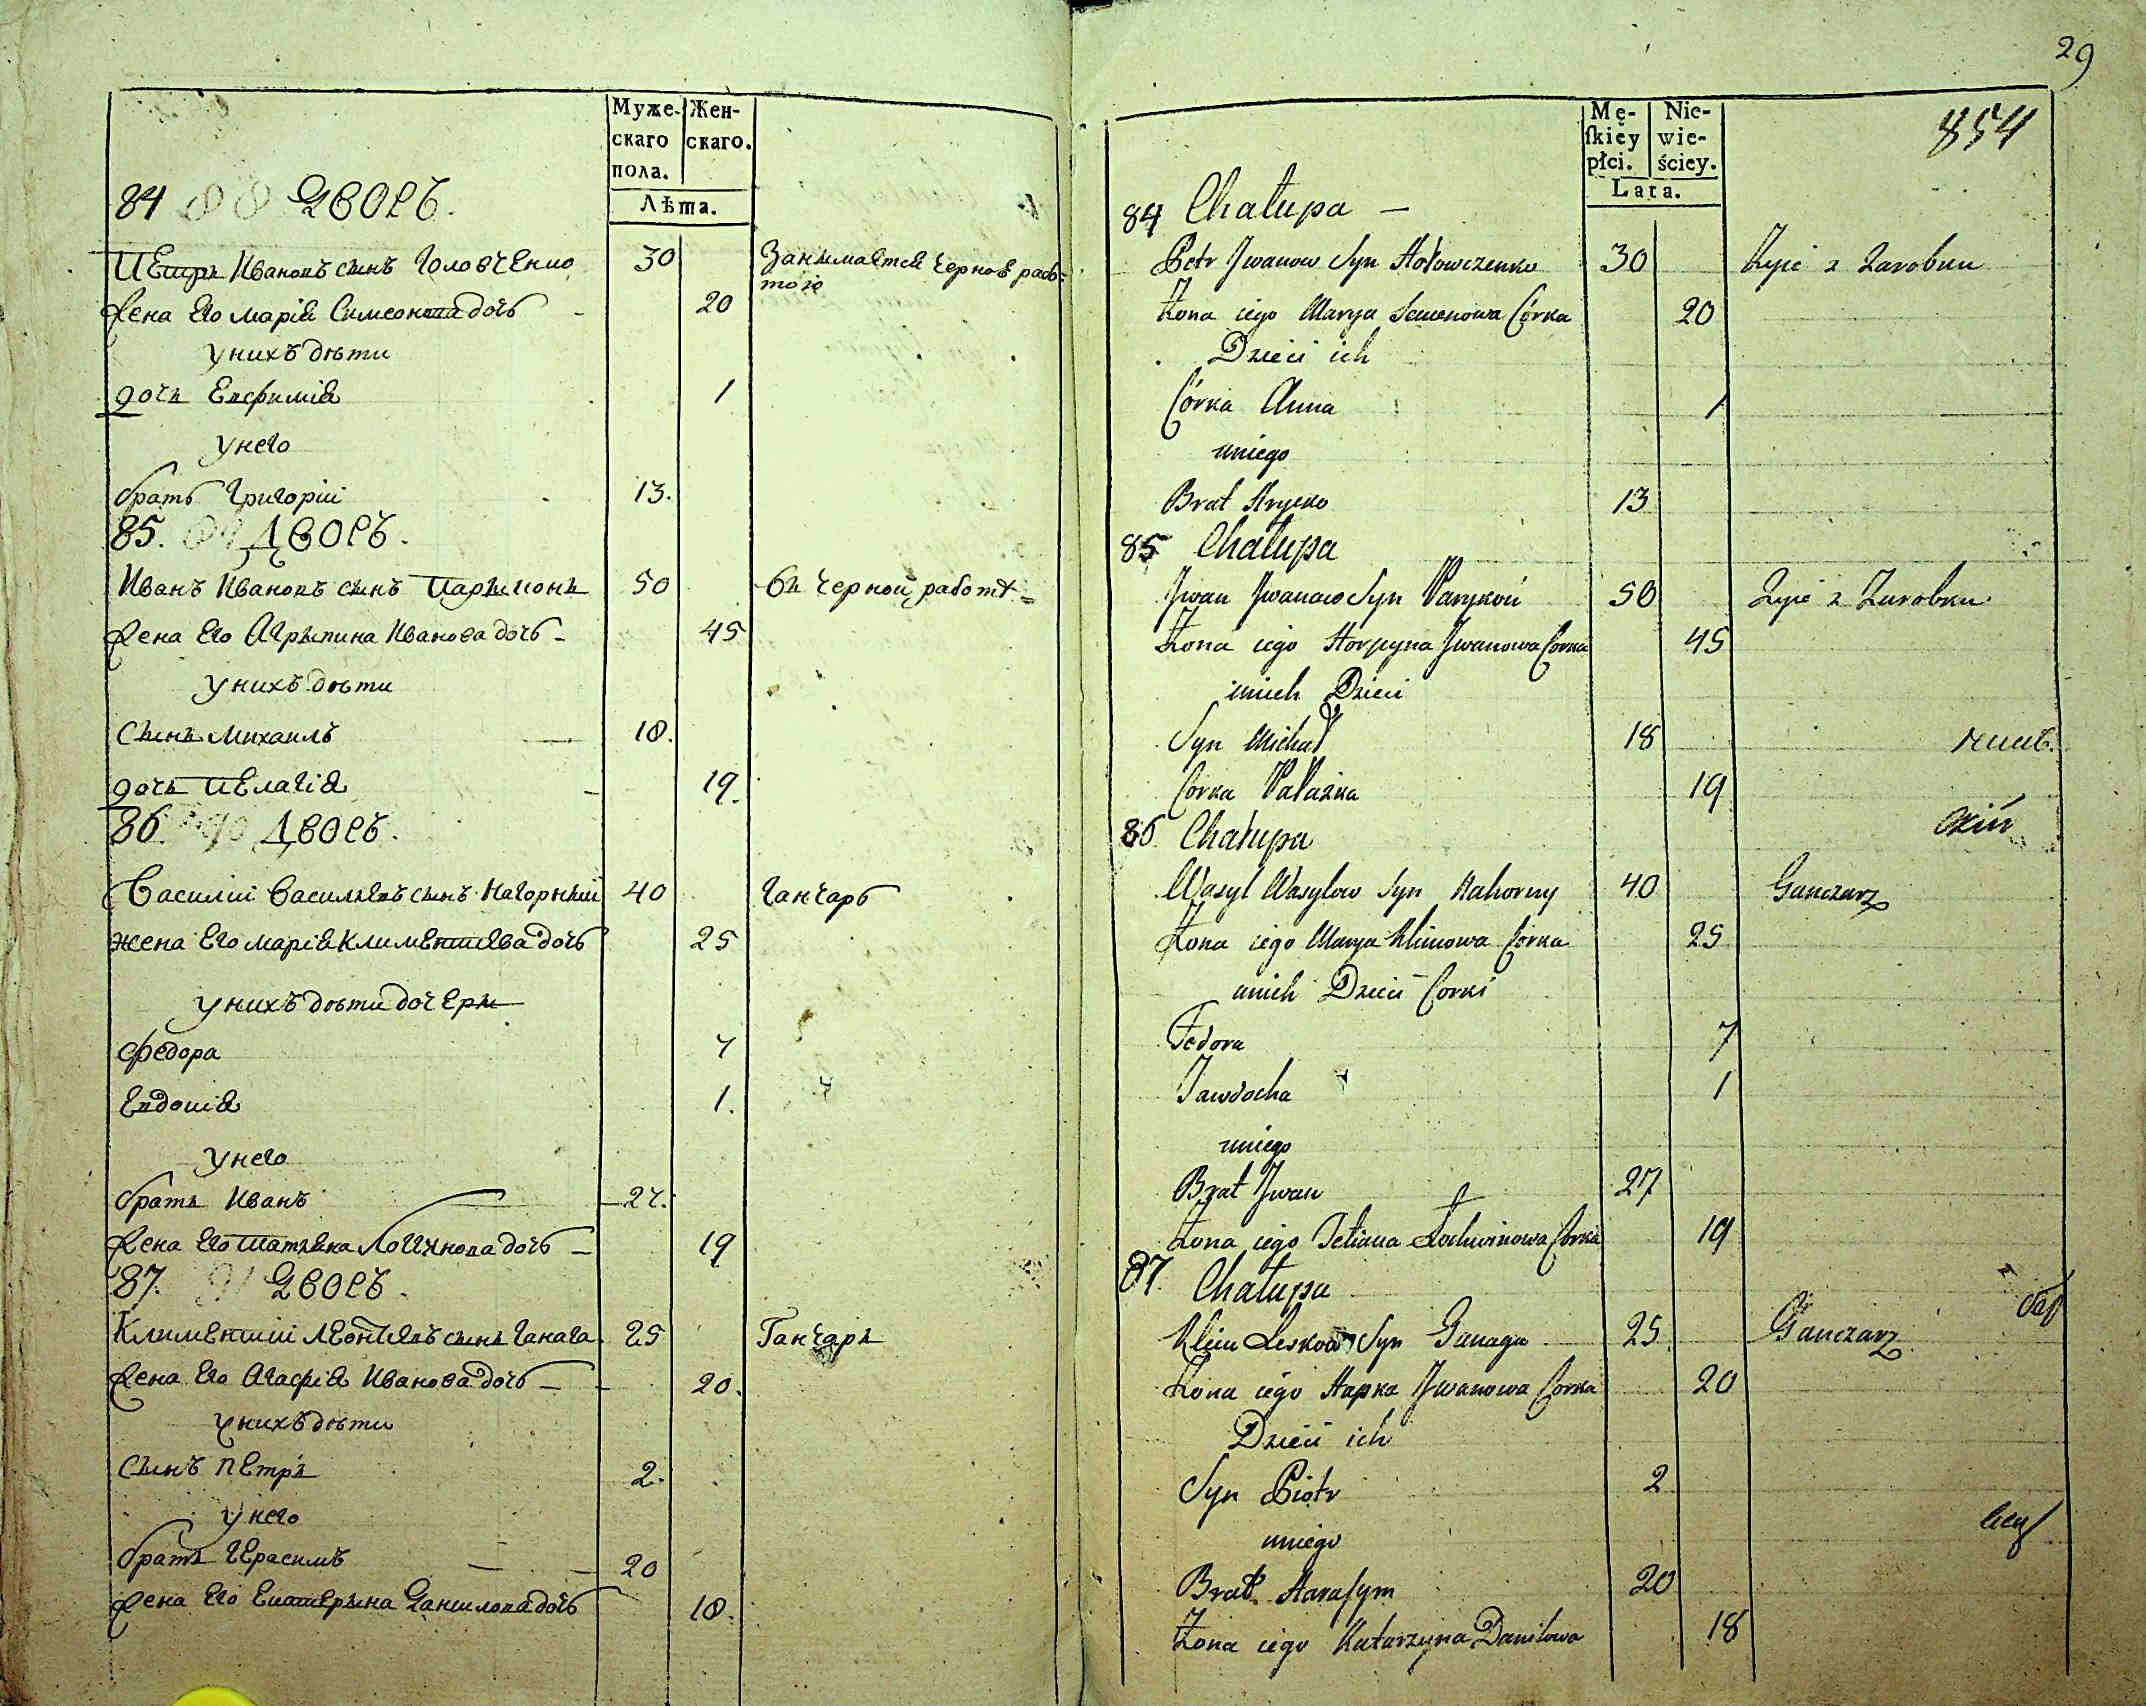 Муже-
скаго
пола.
Жен-
скаго.
Лѣта.
84 88 Дворъ.
Петръ Ивановъ сынъ Головченко 30 Занимается черною рабо-
тою
Жена его Марія Симеонова дочь 20
у нихъ дѣти
дочь Евфимія 1
у него
братъ Григорій 13.
85. 89 Дворъ.
Иванъ Ивановъ сынъ 50 въ черной работѣ
Жена его Агрыпина Иванова дочь 45
у нихъ дѣти
сынъ Михаилъ 18.
дочь Пелагія 19.
86. 90 Дворъ.
Василій Васильевъ сынъ Нагорный 40 Ганчаръ
жена его Марія Климентіева дочь 25
у нихъ дѣти дочеры
Федора 7
Евдокія 1.
у него
братъ Иванъ 27.
Жена его Татіяна Логинова дочь 19
87. 91 Дворъ.
Климентій Леонтіевъ сынъ Ганага 25 Ганчаръ
Жена его Агафія Иванова дочь 20.
у нихъ дѣти
сынъ Петръ 2.
у него
братъ Герасимъ 20
Жена его Екатерына Данилова дочь 18.
29
854
Mę-
ſkiey
płci.
Nie-
wie-
ściey.
Lata.
84 Chałupa
Petr Jwanow Syn Hołowczenko 30 Żyie z Zarobku
Żona iego Marya Semenowa Córka 20
Dzieci ich
Córka Anna 1
u niego
Brat Hryćko 13
85 Chałupa
Jwan Jwanow Syn 50 Żyie z Zarobku
Żona iego Horpyna Jwanowa Corka 45
u nich Dzieci
Syn Michał 18
Corka Pałażka 19
86 Chałupa
Wasyl Wasylow Syn Nahorny 40 Ganczarz
Żona iego Marya Klimowa Córka 25
u nich Dzieci Corki
Fedora 7
Jawdocha 1
u niego
Brat Jwan 27
Żona iego Tetiana Łochwinowa Corka 19
87. Chałupa
Klim Leskow Syn Ganaga 25 Ganczarz
Żona iego Hapka Jwanowa Corka 20
Dzieci ich
Syn Piotr 2
u niego
Brat Haraſym 20
Żona iego Katarzyna Daniłowa 18